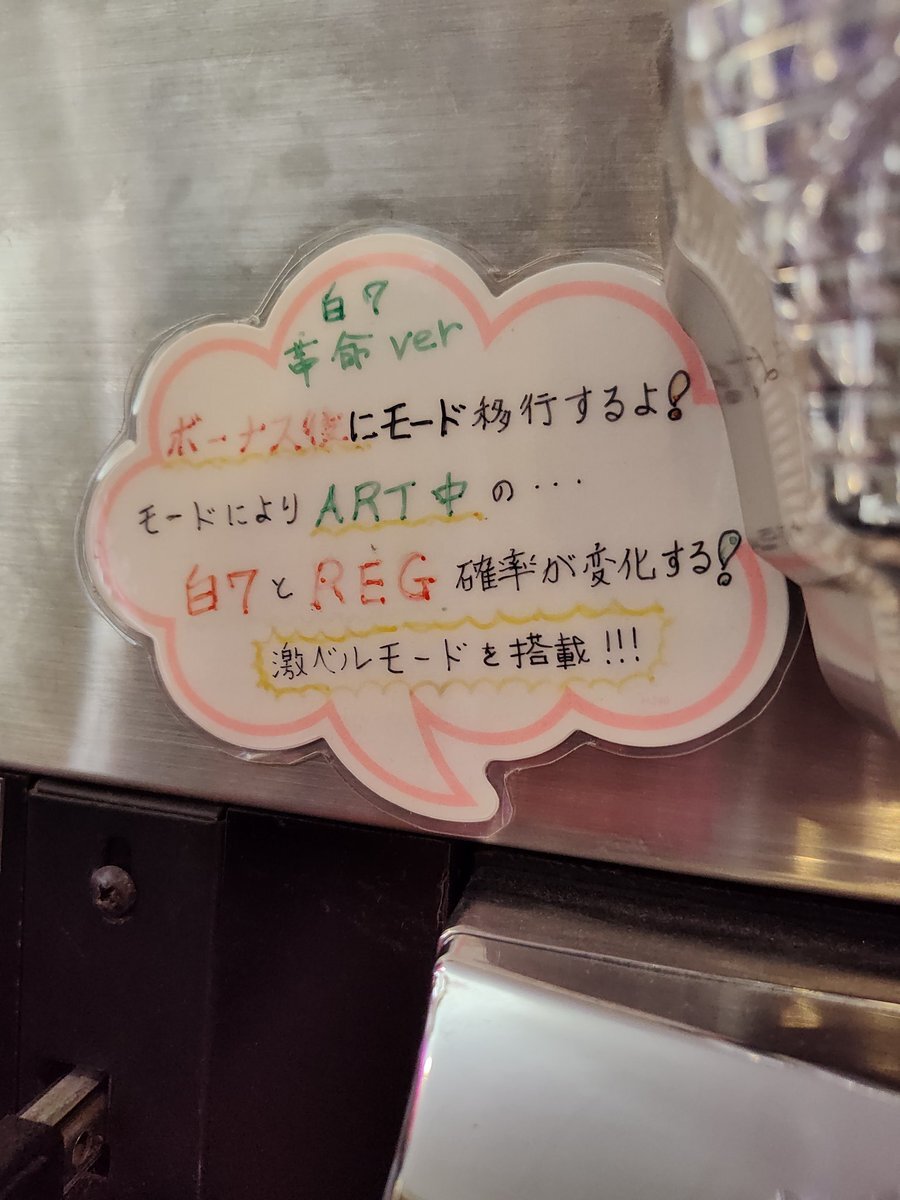 白7
革命ver
ボーナス後にモード移行するよ!
モードにより ART中 の...
白7とREG 確率が変化する!
激ベルモードを搭載!!!